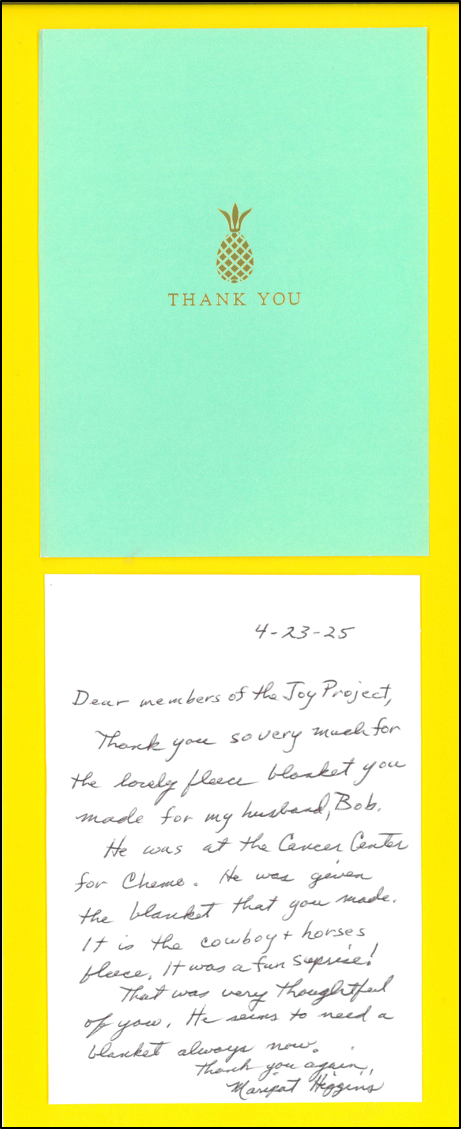 THANK YOU
4-23-25
Dear members of the Joy Project,
Thank you so very much for
the lovely fleece blanket you
made for my husband, Bob.
He was at the Cancer Center
for Chemo. He was given
the blanket that you made.
It is the cowboy + horses
fleece. It was a fun suprise!
That was very thoughtful
of you. He seems to need a
blanket always now.
Thank you again,
Maripat Higgins